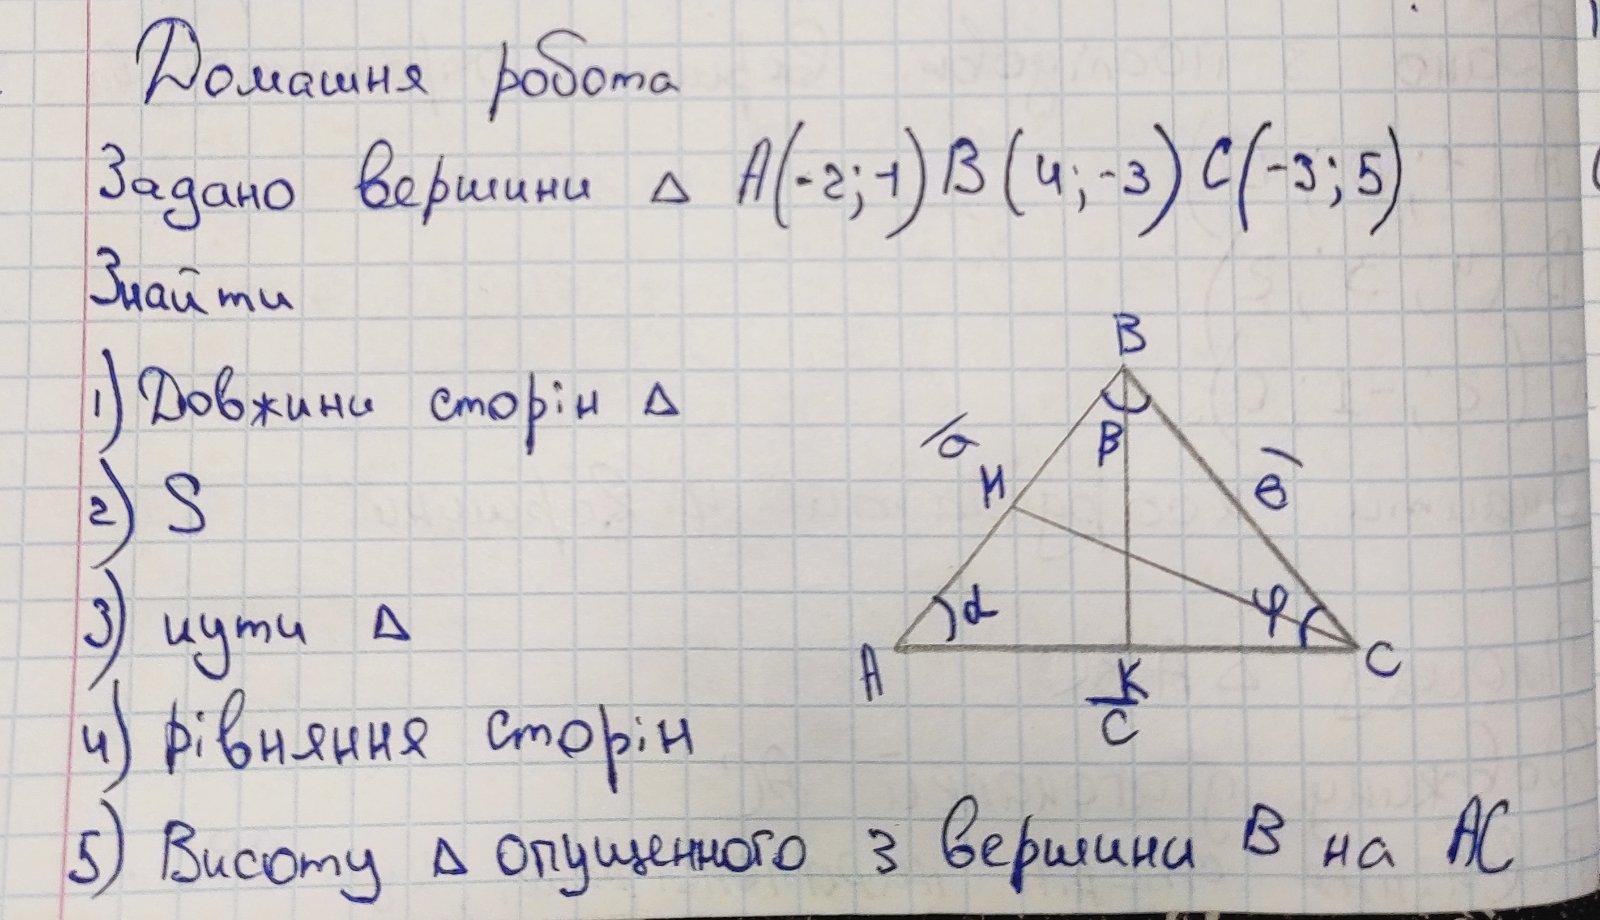 Домашня робота
Задано вершини Δ A(-2;-1) B(4;-3) C(-3;5)
Знайти
1) Довжини сторін Δ
2) S
3) кути Δ
4) рівняння сторін
5) Висоту Δ опущенного з вершини B на AC
B
a
β
H
в
α
φ
A
K
C
C